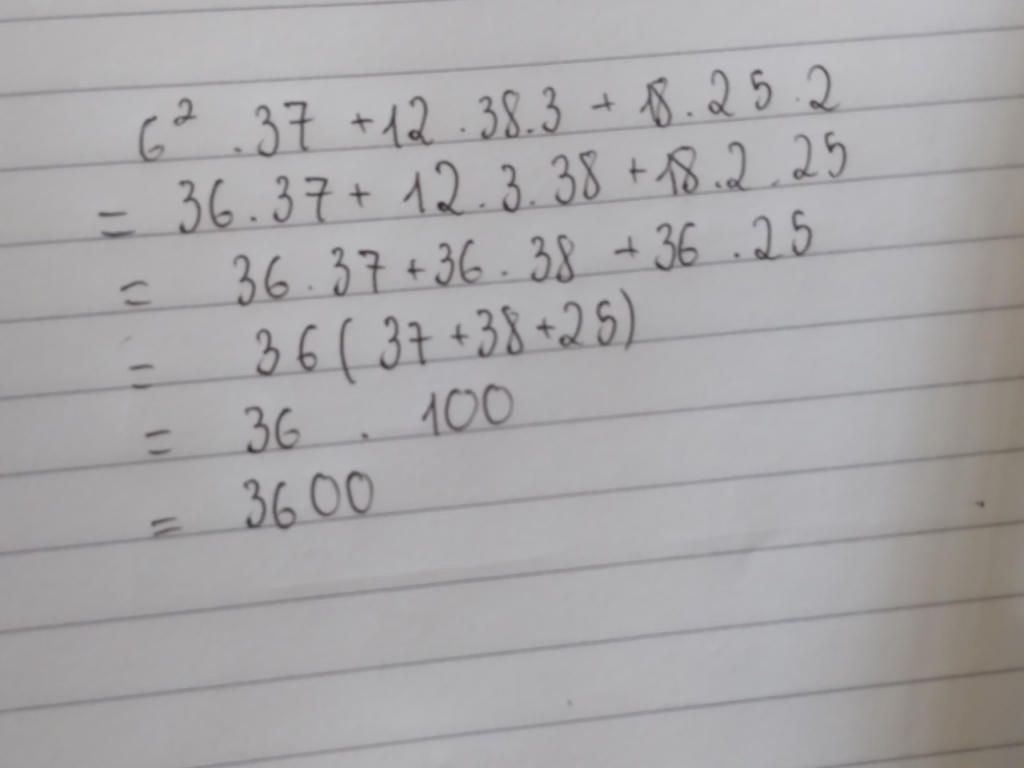 6² . 37 + 12 . 38 . 3 + 18 . 25 . 2
= 36 . 37 + 12 . 3 . 38 + 18 . 2 . 25
= 36 . 37 + 36 . 38 + 36 . 25
= 36 ( 37 + 38 + 25 )
= 36 . 100
= 3600